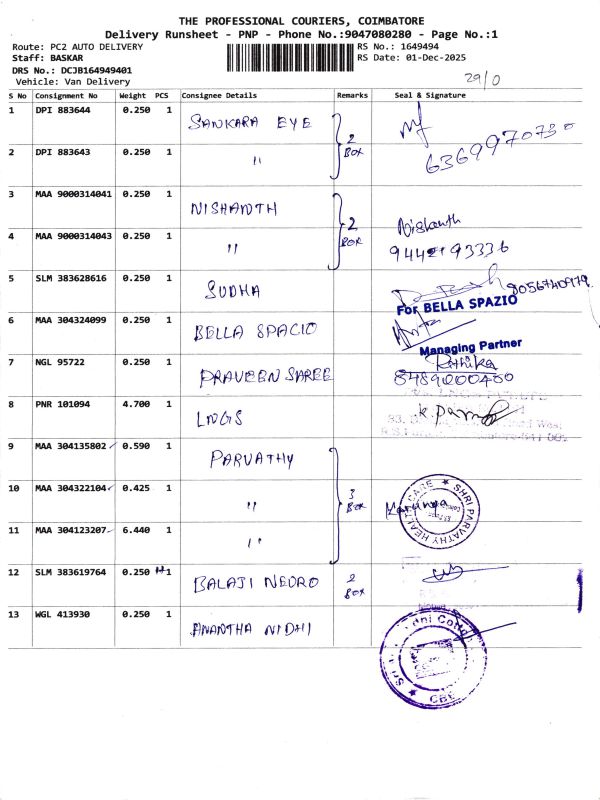 THE PROFESSIONAL COURIERS, COIMBATORE
Delivery Runsheet - PNP - Phone No.:9047080280 - Page No.:1
Route: PC2 AUTO DELIVERY
RS No.: 1649494
Staff: BASKAR
RS Date: 01-Dec-2025
DRS No.: DCJB164949401
Vehicle: Van Delivery
29/0
S No Consignment No Weight PCS Consignee Details Remarks Seal & Signature
1 DPI 883644 0.250 1 SANKARA EYE
2 BOX
6369970730
2 DPI 883643 0.250 1 "
3 MAA 9000314041 0.250 1 NISHANTH
2 BOX
Nishanth
4 MAA 9000314043 0.250 1 "
5 SLM 383628616 0.250 1 SUDHA
8056740979
For BELLA SPAZIO
6 MAA 304324099 0.250 1 BELLA SPACIO
Managing Partner
7 NGL 95722 0.250 1 PRAVEEN SAREE
Rithika
8489000400
8 PNR 101094 4.700 1 LNGS
9 MAA 304135802 0.590 1 PARVATHY
10 MAA 304322104 0.425 1 "
3 BOX
Karunya
SHRI PARVATHY HEALTH CARE
11 MAA 304123207 6.440 1 "
12 SLM 383619764 0.250 1 BALAJI NEURO
2 BOX
13 WGL 413930 0.250 1 ANANTHA NIDHI
CBE